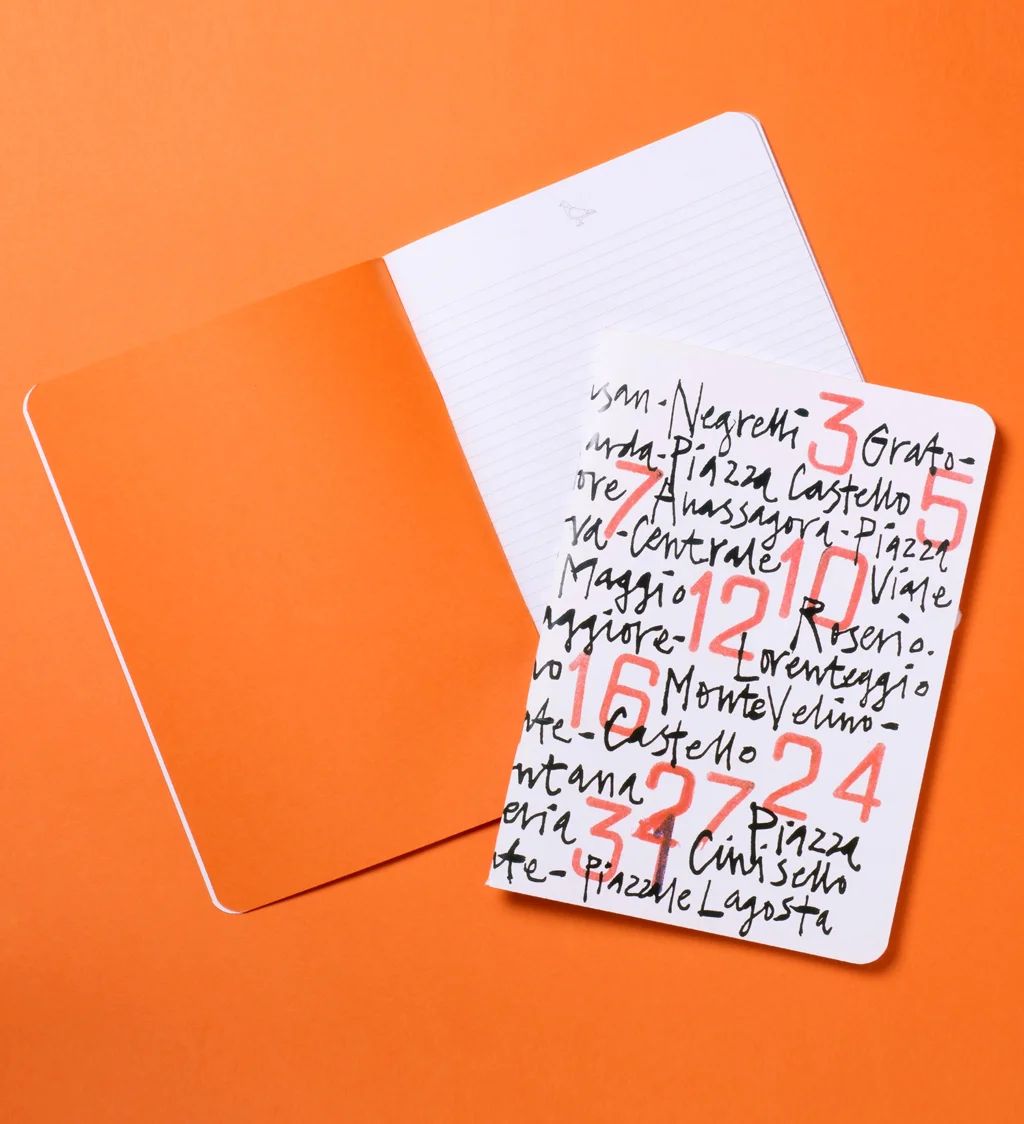 usan - Negrelli 3 Grato-
arda - Piazza Castello 5
ore 7 Anassagora - Piazza
va - Centrale 10 Viale
Maggio 12 Roserio.
aggiore - Lorenteggio
no 16 Monte Velino -
nte - Castello 24
ntana 27 Piazza
eria 31 Cinisello
nte - Piazzale Lagosta